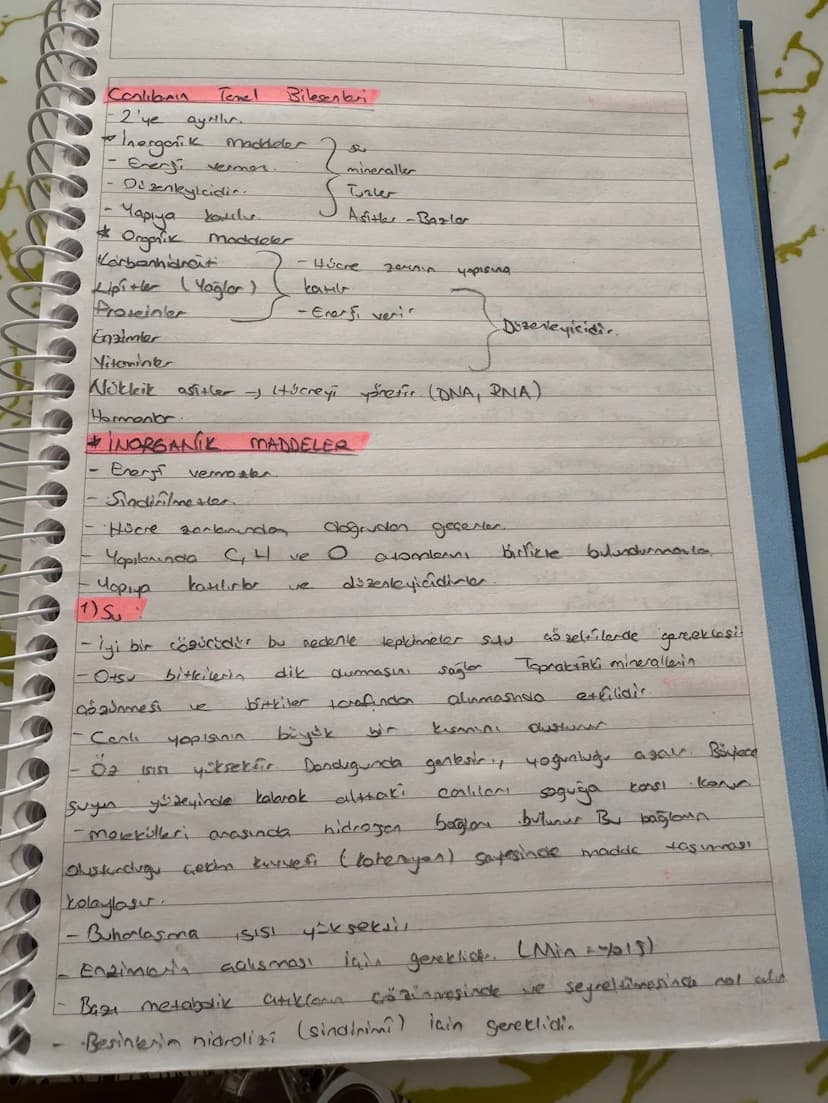 Canlıların Temel Bileşenleri
- 2'ye ayrılır.
* İnorganik maddeler } su
- Enerji vermez. mineraller
- Düzenleyicidir. Tuzlar
- Yapıya katılır Asitler - Bazlar
* Organik maddeler
Karbonhidrat } - Hücre zarının yapısına
Lipitler (Yağlar) katılır
Proteinler - Enerji verir } Düzenleyicidir.
Enzimler
Vitaminler
Nükleik asitler → Hücreyi yönetir (DNA, RNA)
Hormonlar
* İNORGANİK MADDELER
- Enerji vermezler.
- Sindirilmezler.
- Hücre zarlarından doğrudan geçerler.
- Yapılarında C, H ve O atomlarını birlikte bulundurmazlar
- Yapıya katılırlar ve düzenleyicidirler.
1) Su:
- İyi bir çözücüdür bu nedenle tepkimeler sulu çözeltilerde gerçekleşir
- Otsu bitkilerin dik durmasını sağlar Topraktaki minerallerin
çözünmesi ve bitkiler tarafından alınmasında etkilidir
- Canlı yapısının büyük bir kısmını oluşturur
- Öz ısısı yüksektir Dondugunda genleşir, yoğunluğu azalır. Böylece
suyun yüzeyinde kalarak alttaki canlıları soğuğa karşı korur
- molekülleri arasında hidrojen bağları bulunur Bu bağların
oluşturduğu çekim kuvveti (kohezyon) sayesinde madde taşınması
kolaylaşır.
- Buharlaşma ısısı yüksektir.
- Enzimlerin çalışması için gereklidir. (Min = %15)
- Bazı metabolik atıkların çözünmesinde ve seyreltilmesinde rol alır
- Besinlerim hidrolizi (sindirimi) için gereklidir.